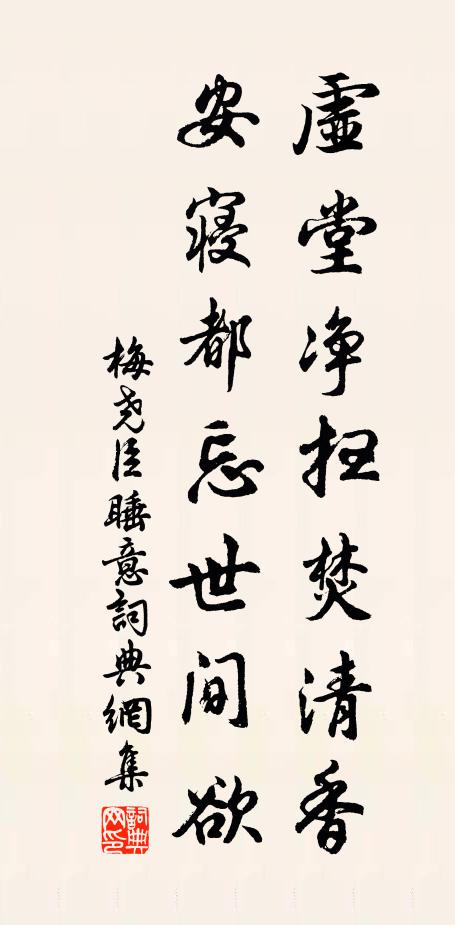 虛堂净掃焚清香
安寝都忘世间欲
梅堯臣睡意詞典網集
詞典網印